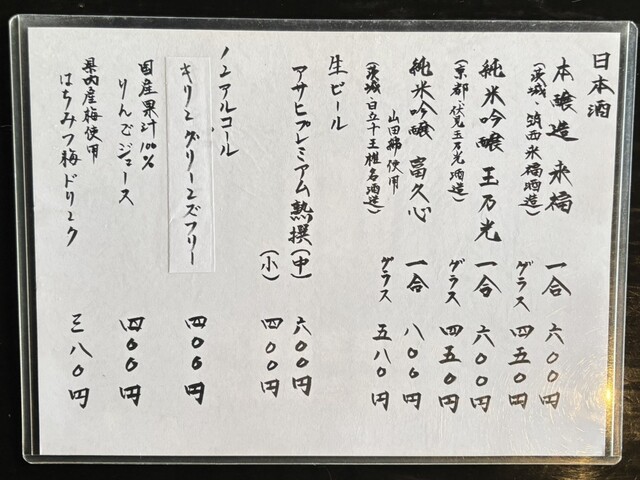 日本酒
本醸造 来福 一合 六〇〇円
(茨城・筑西来福酒造) グラス 四五〇円
純米吟醸 玉乃光 一合 六〇〇円
(京都・伏見玉乃光酒造) グラス 四五〇円
純米吟醸 富久心 一合 八〇〇円
山田錦使用
(茨城・日立十王椎名酒造) グラス 五八〇円
生ビール
アサヒプレミアム熟撰(中) 六〇〇円
(小) 四〇〇円
ノンアルコール
キリン グリーンズフリー 四〇〇円
国産果汁100%
りんごジュース 四〇〇円
県内産梅使用
はちみつ梅ドリンク 三八〇円